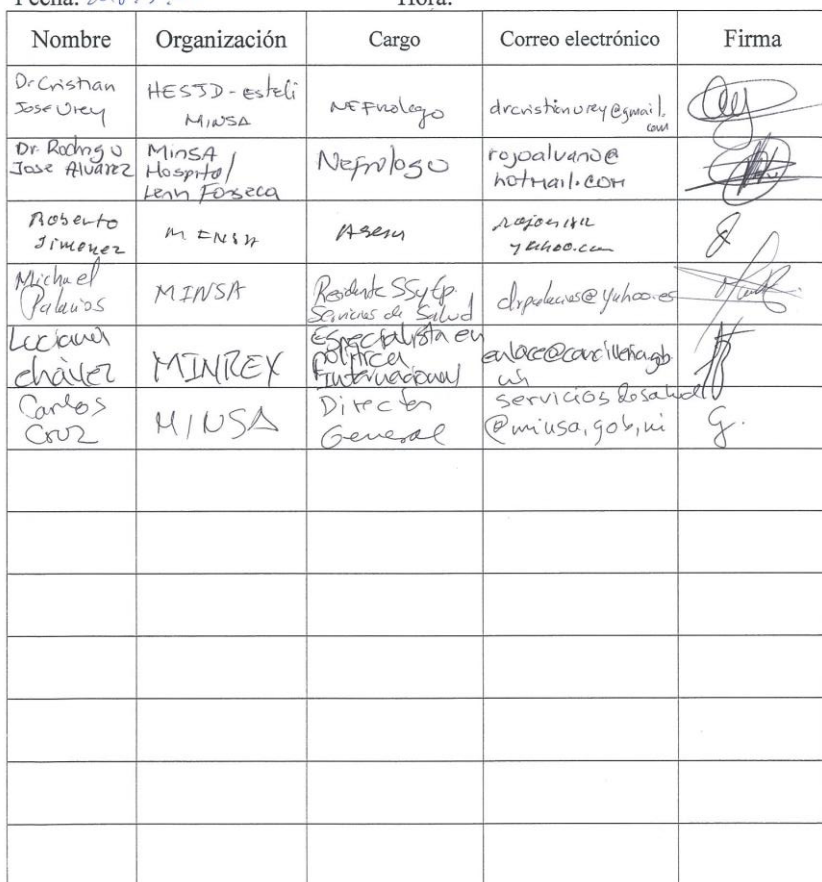 Fecha: Hora:
Nombre Organización Cargo Correo electrónico Firma
Dr Cristian
Jose Urey
HESJD - estelí
MINSA
NEFROlogo
drcristianurey@gmail.
com
Dr. Rodrigo
Jose Alvarez
MinsA
Hospital/
Lenin Fonseca
Nefrologo
rojoalvano@
hotmail.com
Roberto
Jimenez
MINSA
yahoo.com
Michael
Palacios
MINSA
Residente SSyEp.
Servicios de Salud
drpalacios@yahoo.es
Luciana
chávez
MINREX
Especialista en
política
Internacional
enlace@cancilleria.gb
Carlos
Cruz
MINSA
Director
General
serviciosdesalud
@minsa.gob.ni